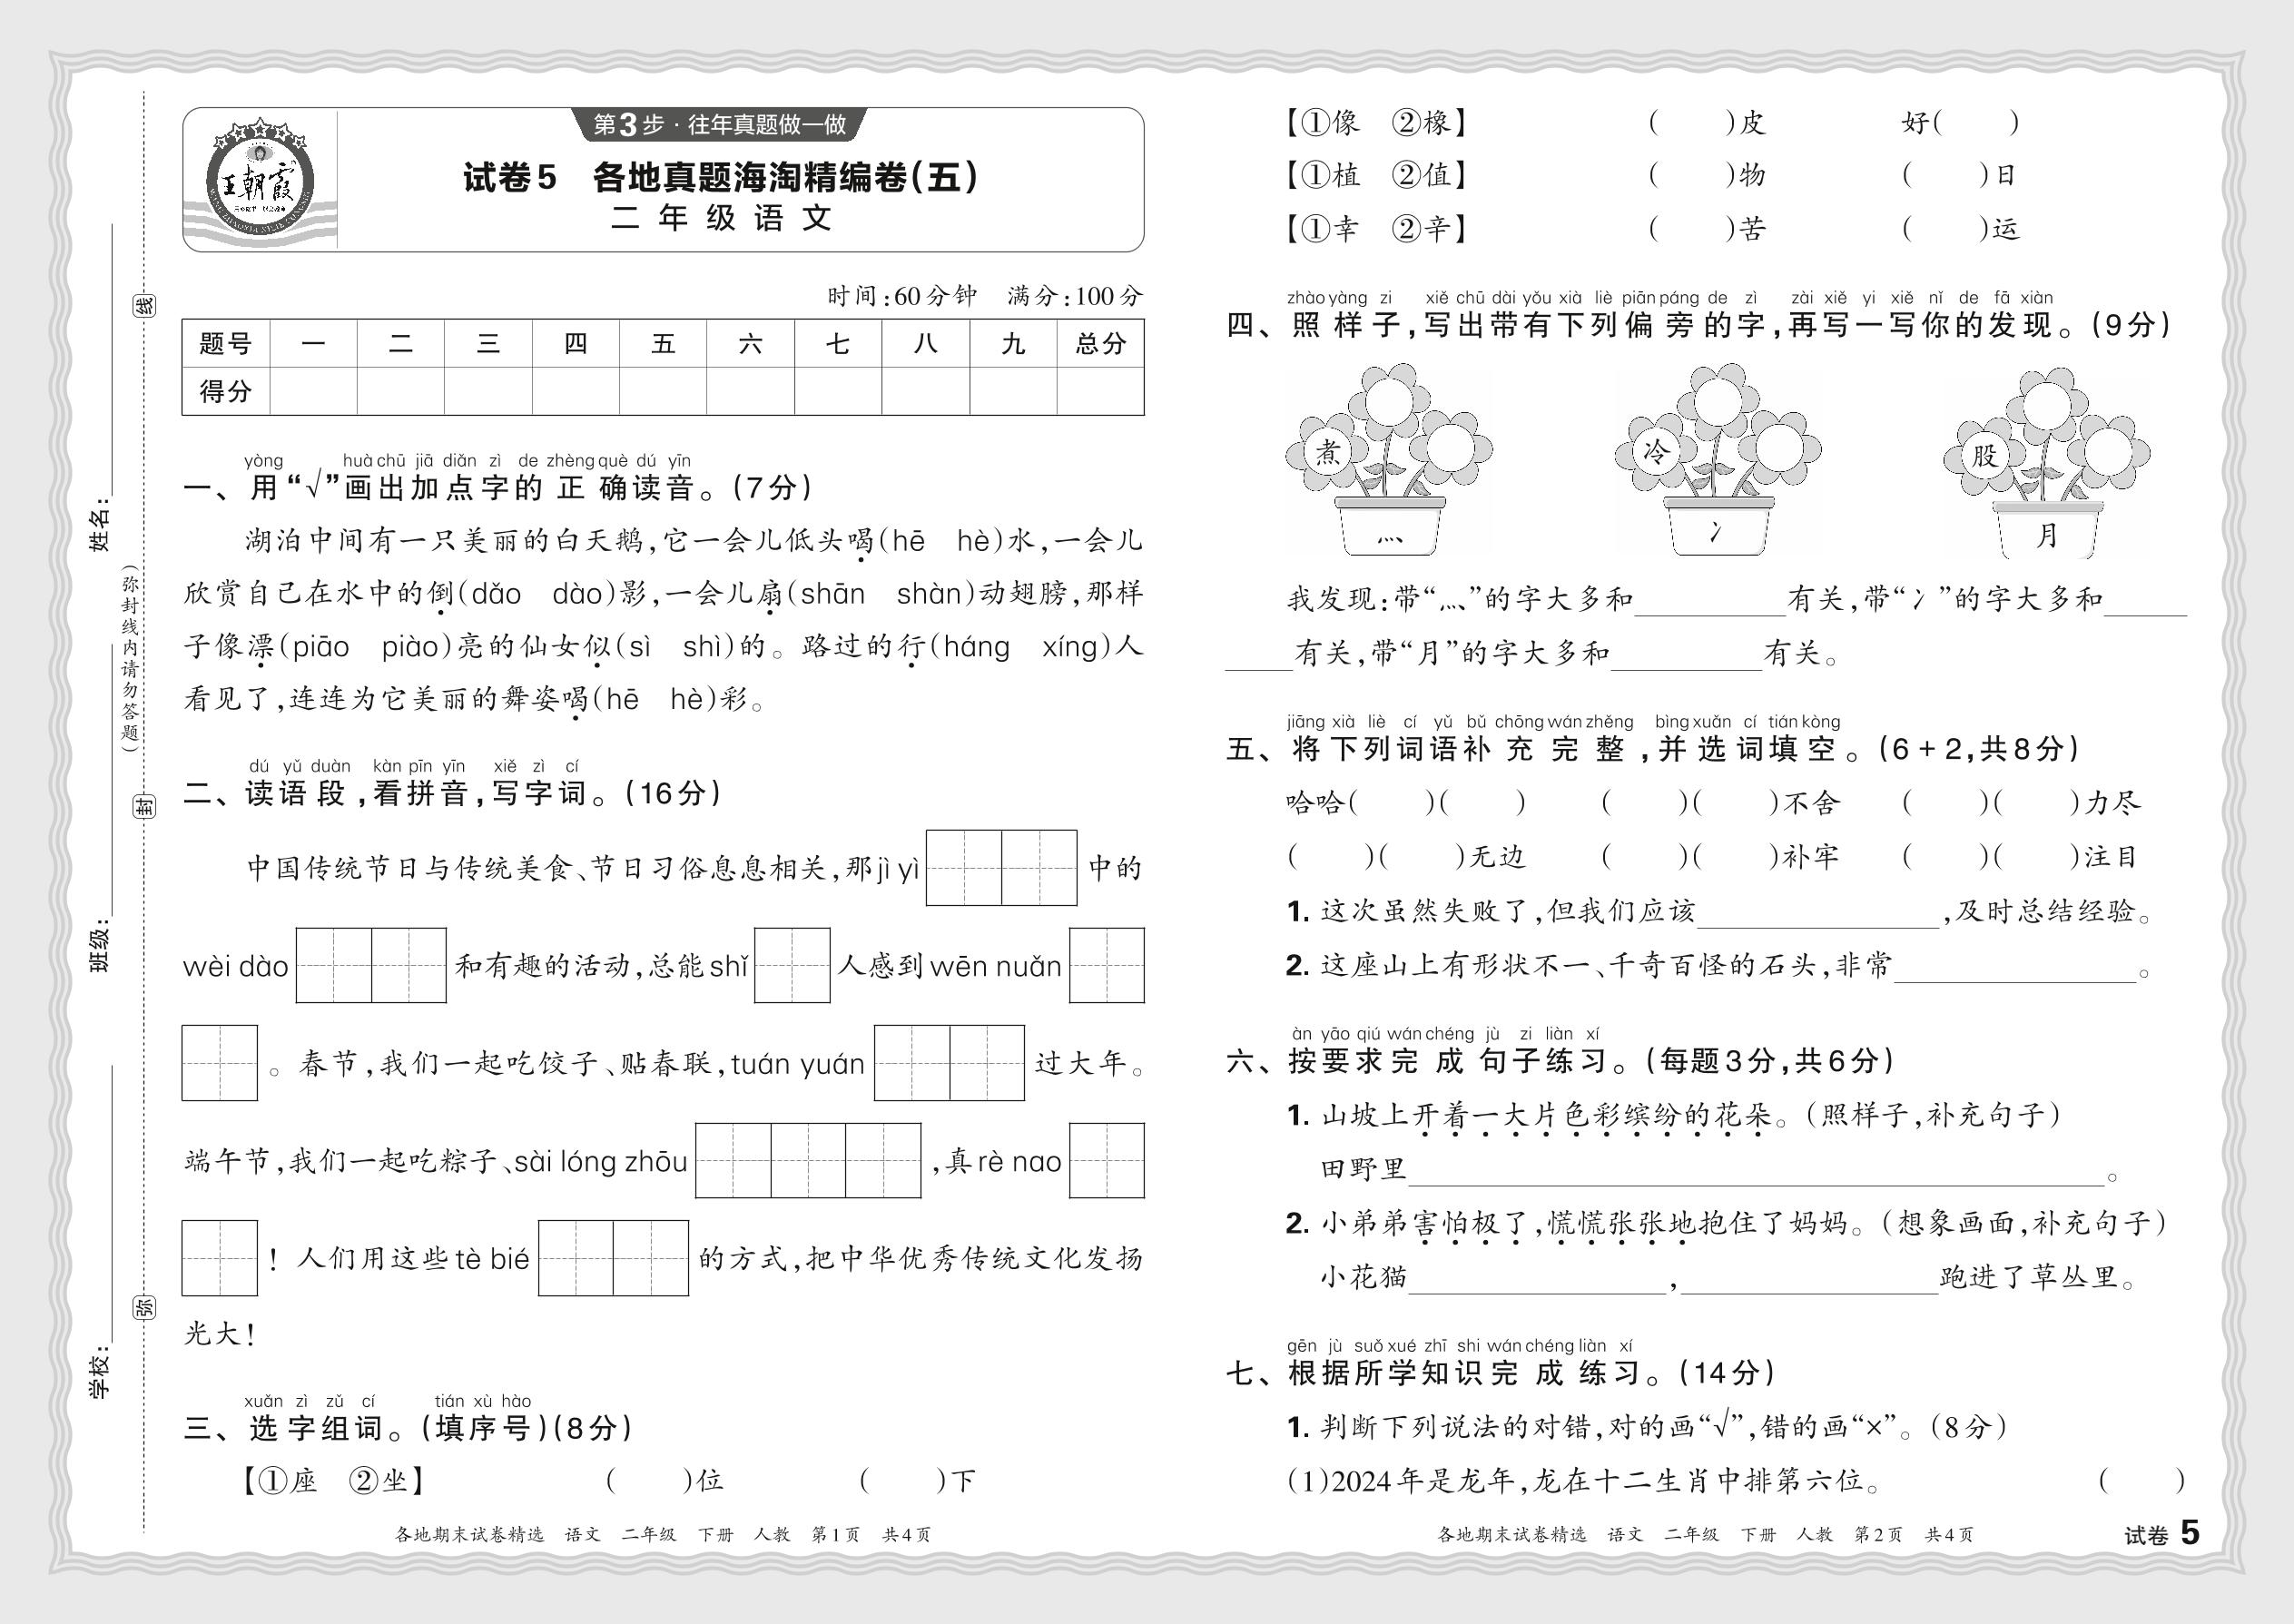 第3步·往年真题做一做
王朝霞
试卷5 各地真题海淘精编卷(五)
二年级语文
时间:60分钟 满分:100分
题号 一 二 三 四 五 六 七 八 九 总分
得分
yòng huà chū jiā diǎn zì de zhèng què dú yīn
一、用“√”画出加点字的正确读音。(7分)
湖泊中间有一只美丽的白天鹅,它一会儿低头喝(hē hè)水,一会儿
欣赏自己在水中的倒(dǎo dào)影,一会儿扇(shān shàn)动翅膀,那样
子像漂(piāo piào)亮的仙女似(sì shì)的。路过的行(háng xíng)人
看见了,连连为它美丽的舞姿喝(hē hè)彩。
dú yǔ duàn kàn pīn yīn xiě zì cí
二、读语段,看拼音,写字词。(16分)
中国传统节日与传统美食、节日习俗息息相关,那jì yì 中的
wèi dào 和有趣的活动,总能shǐ 人感到wēn nuǎn
。春节,我们一起吃饺子、贴春联,tuán yuán 过大年。
端午节,我们一起吃粽子、sài lóng zhōu ,真rè nao
!人们用这些tè bié 的方式,把中华优秀传统文化发扬
光大!
xuǎn zì zǔ cí tián xù hào
三、选字组词。(填序号)(8分)
【①座 ②坐】 ( )位 ( )下
各地期末试卷精选 语文 二年级 下册 人教 第1页 共4页
姓名:
班级:
学校:
(弥封线内请勿答题)
线
封
弥
【①像 ②橡】 ( )皮 好( )
【①植 ②值】 ( )物 ( )日
【①幸 ②辛】 ( )苦 ( )运
zhào yàng zi xiě chū dài yǒu xià liè piān páng de zì zài xiě yi xiě nǐ de fā xiàn
四、照样子,写出带有下列偏旁的字,再写一写你的发现。(9分)
煮 冷 股
灬 冫 月
我发现:带“灬”的字大多和 有关,带“冫”的字大多和
有关,带“月”的字大多和 有关。
jiāng xià liè cí yǔ bǔ chōng wán zhěng bìng xuǎn cí tián kòng
五、将下列词语补充完整,并选词填空。(6+2,共8分)
哈哈( )( ) ( )( )不舍 ( )( )力尽
( )( )无边 ( )( )补牢 ( )( )注目
1. 这次虽然失败了,但我们应该 ,及时总结经验。
2. 这座山上有形状不一、千奇百怪的石头,非常 。
àn yāo qiú wán chéng jù zi liàn xí
六、按要求完成句子练习。(每题3分,共6分)
1. 山坡上开着一大片色彩缤纷的花朵。(照样子,补充句子)
田野里 。
2. 小弟弟害怕极了,慌慌张张地抱住了妈妈。(想象画面,补充句子)
小花猫 , 跑进了草丛里。
gēn jù suǒ xué zhī shi wán chéng liàn xí
七、根据所学知识完成练习。(14分)
1. 判断下列说法的对错,对的画“√”,错的画“×”。(8分)
(1)2024年是龙年,龙在十二生肖中排第六位。 ( )
各地期末试卷精选 语文 二年级 下册 人教 第2页 共4页
试卷 5